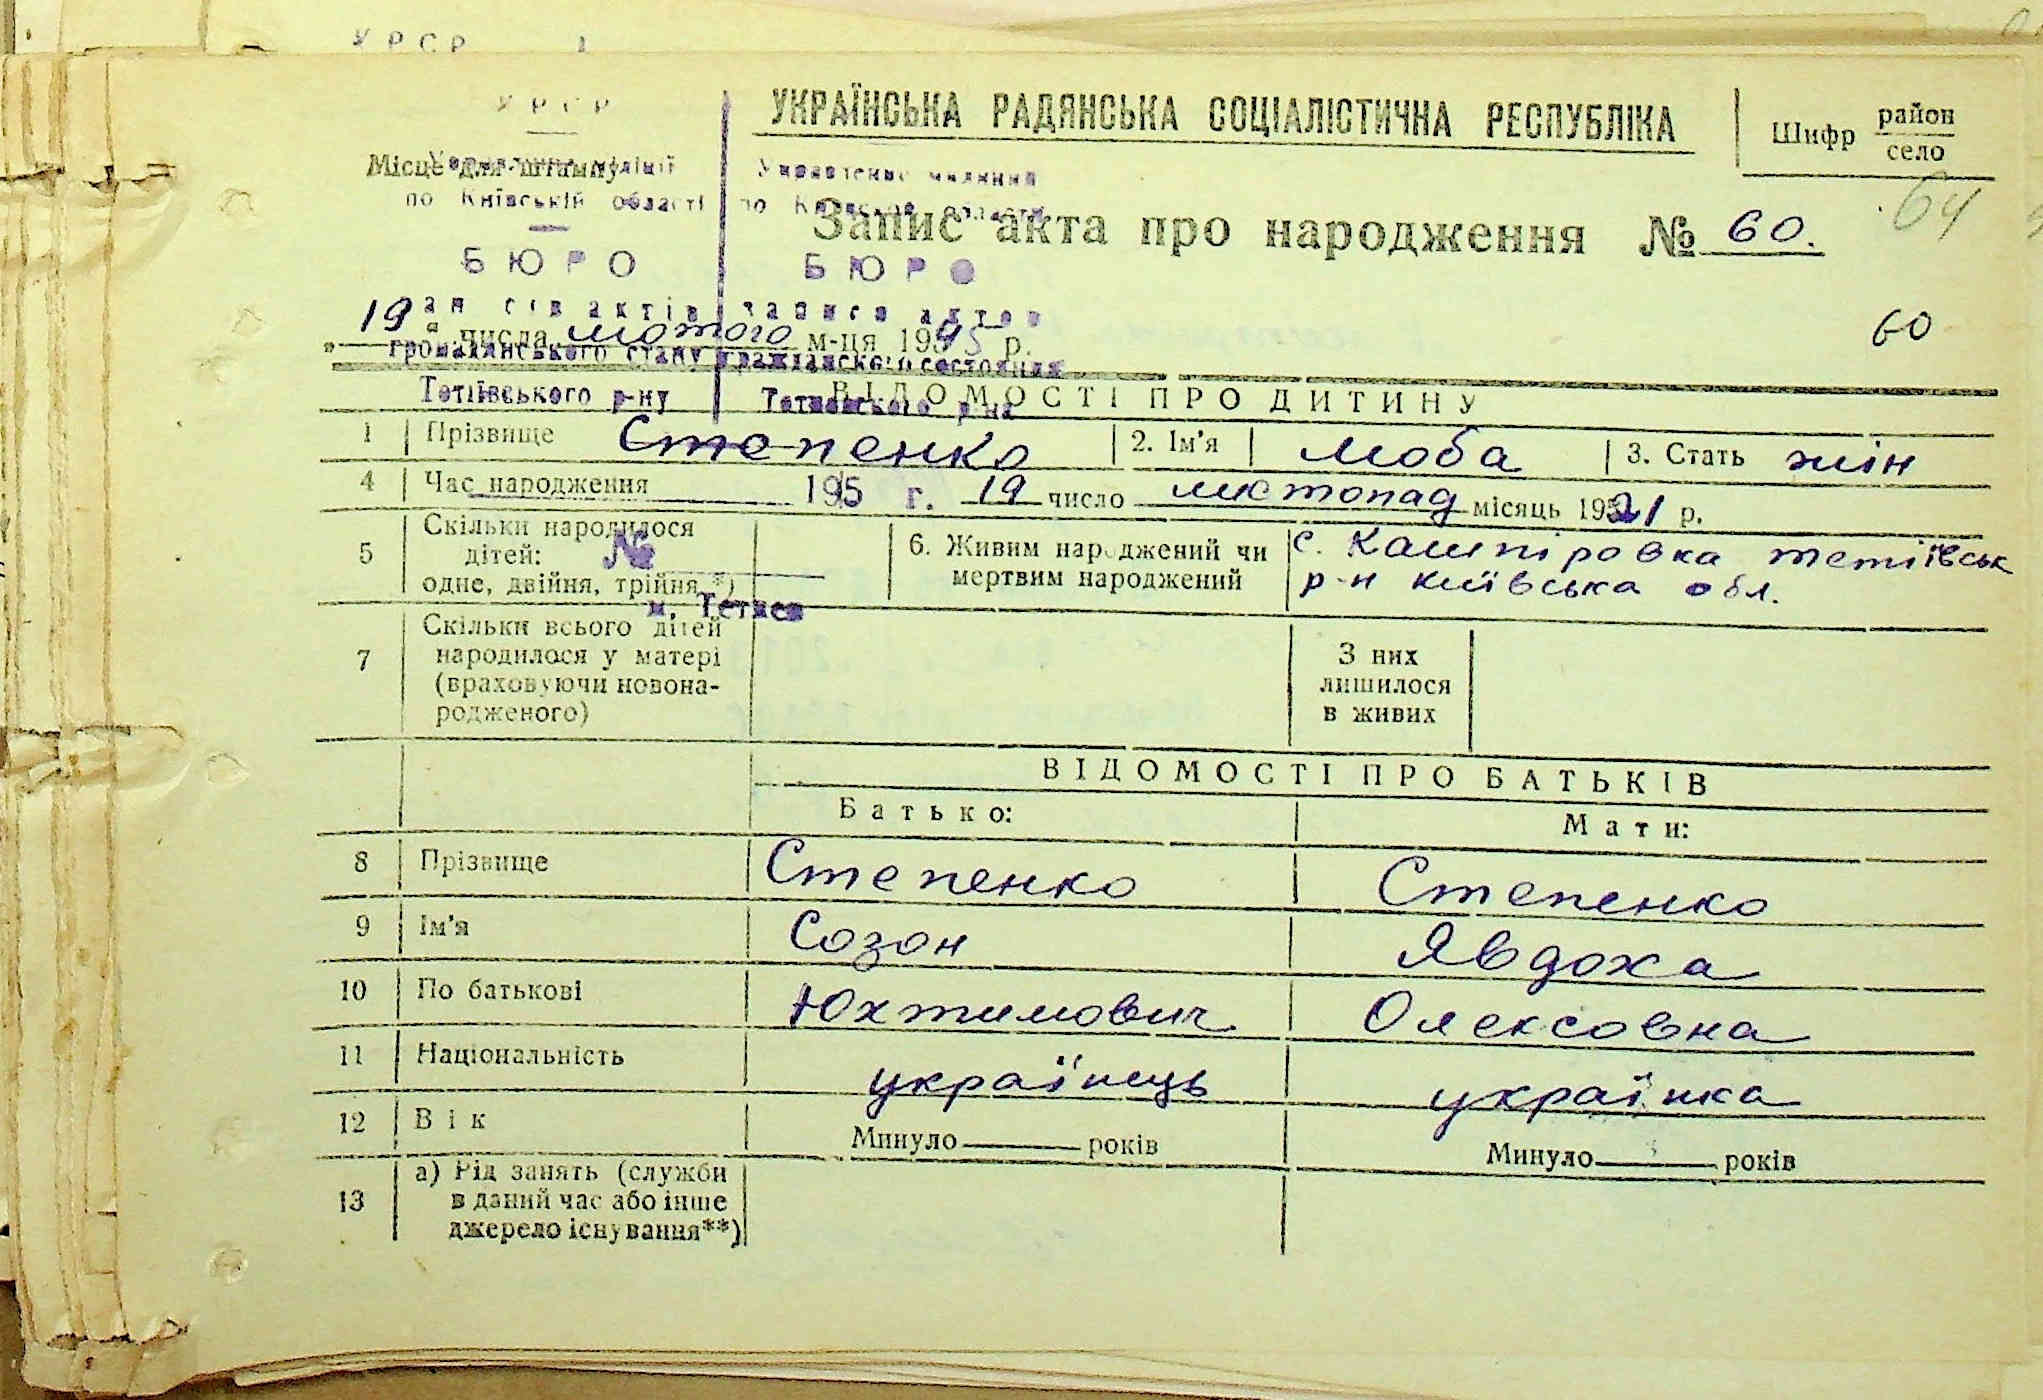 УРСР
УРСР
УКРАЇНСЬКА РАДЯНСЬКА СОЦІАЛІСТИЧНА РЕСПУБЛІКА
Шифр район
село
Місце для штампу
Управління міліції Управление милиции
по Київській області по Киевской области
64
Запис акта про народження № 60.
БЮРО БЮРО
зап сів актів записи актов
19 числа лютого м-ця 1995 р.
60
громадянського стану гражданского состояния
Тетіївського р-ну Тетиевского р-на
ВІДОМОСТІ ПРО ДИТИНУ
1 Прізвище Степенко 2. Ім'я Люба 3. Стать жін
4 Час народження 195 г. 19 число листопад місяць 1921 р.
5 Скільки народилося
дітей:
одне, двійня, трійня *)
№
м. Тетиев
6. Живим народжений чи
мертвим народжений
с. Кашпіровка тетіївськ
р-н київська обл.
7 Скільки всього дітей
народилося у матері
(враховуючи новона-
родженого)
З них
лишилося
в живих
ВІДОМОСТІ ПРО БАТЬКІВ
Батько: Мати:
8 Прізвище Степенко Степенко
9 Ім'я Созон Явдоха
10 По батькові Юхтимович Олексовна
11 Національність українець українка
12 Вік Минуло років Минуло років
13 а) Рід занять (служби
в даний час або інше
джерело існування**)